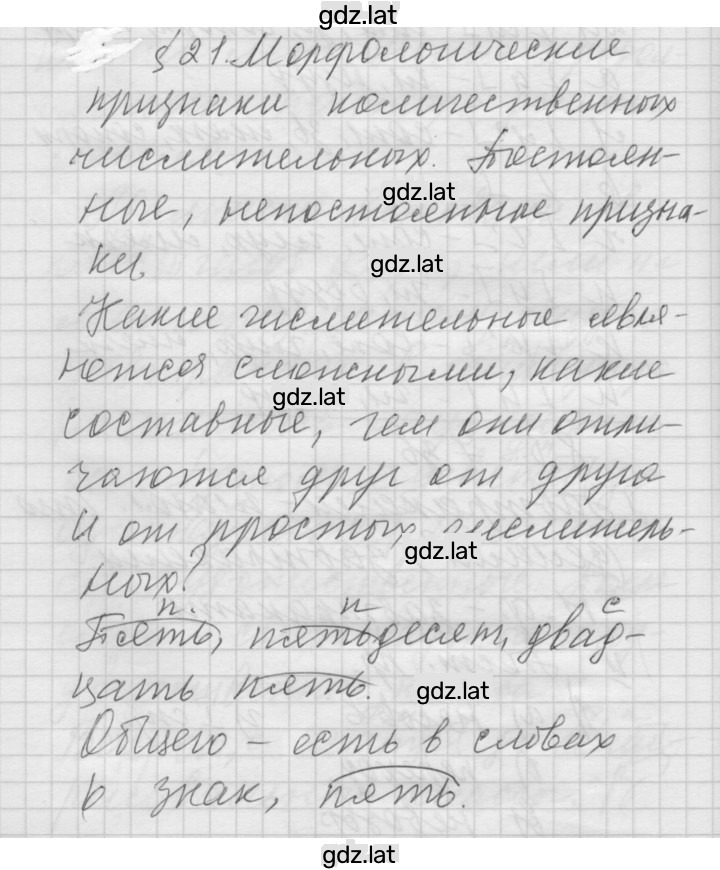 gdz.lat
§ 21. Морфологические
признаки количественных
числительных. Постоян-
gdz.lat
ные, непостоянные призна-
ки.
gdz.lat
Какие числительные явля-
ются сложными, какие
gdz.lat
составные, чем они отли-
чаются друг от друга
и от простых числитель-
gdz.lat
ных?
п. п с
Пять, пятьдесят, двад-
цать пять.
gdz.lat
Общего – есть в словах
ь знак, пять.
gdz.lat